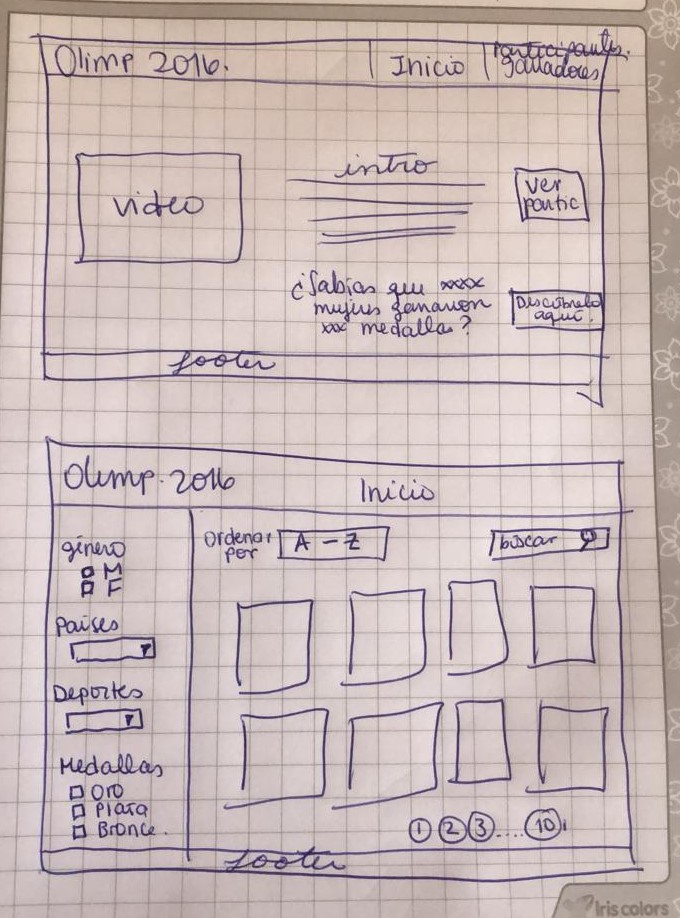 Olimp 2016.
Inicio
Participantes.
ganadores
video
intro
ver
partic
¿Sabías que xxxx
mujeres ganaron
xxx medalla?
Descúbrelo
aquí.
footer
Olimp. 2016
Inicio
género
M
F
Países
Deportes
Medallas
Oro
Plata
Bronce.
Ordenar
por
A - Z
buscar
1 2 3 .... 10
footer
Iris colors